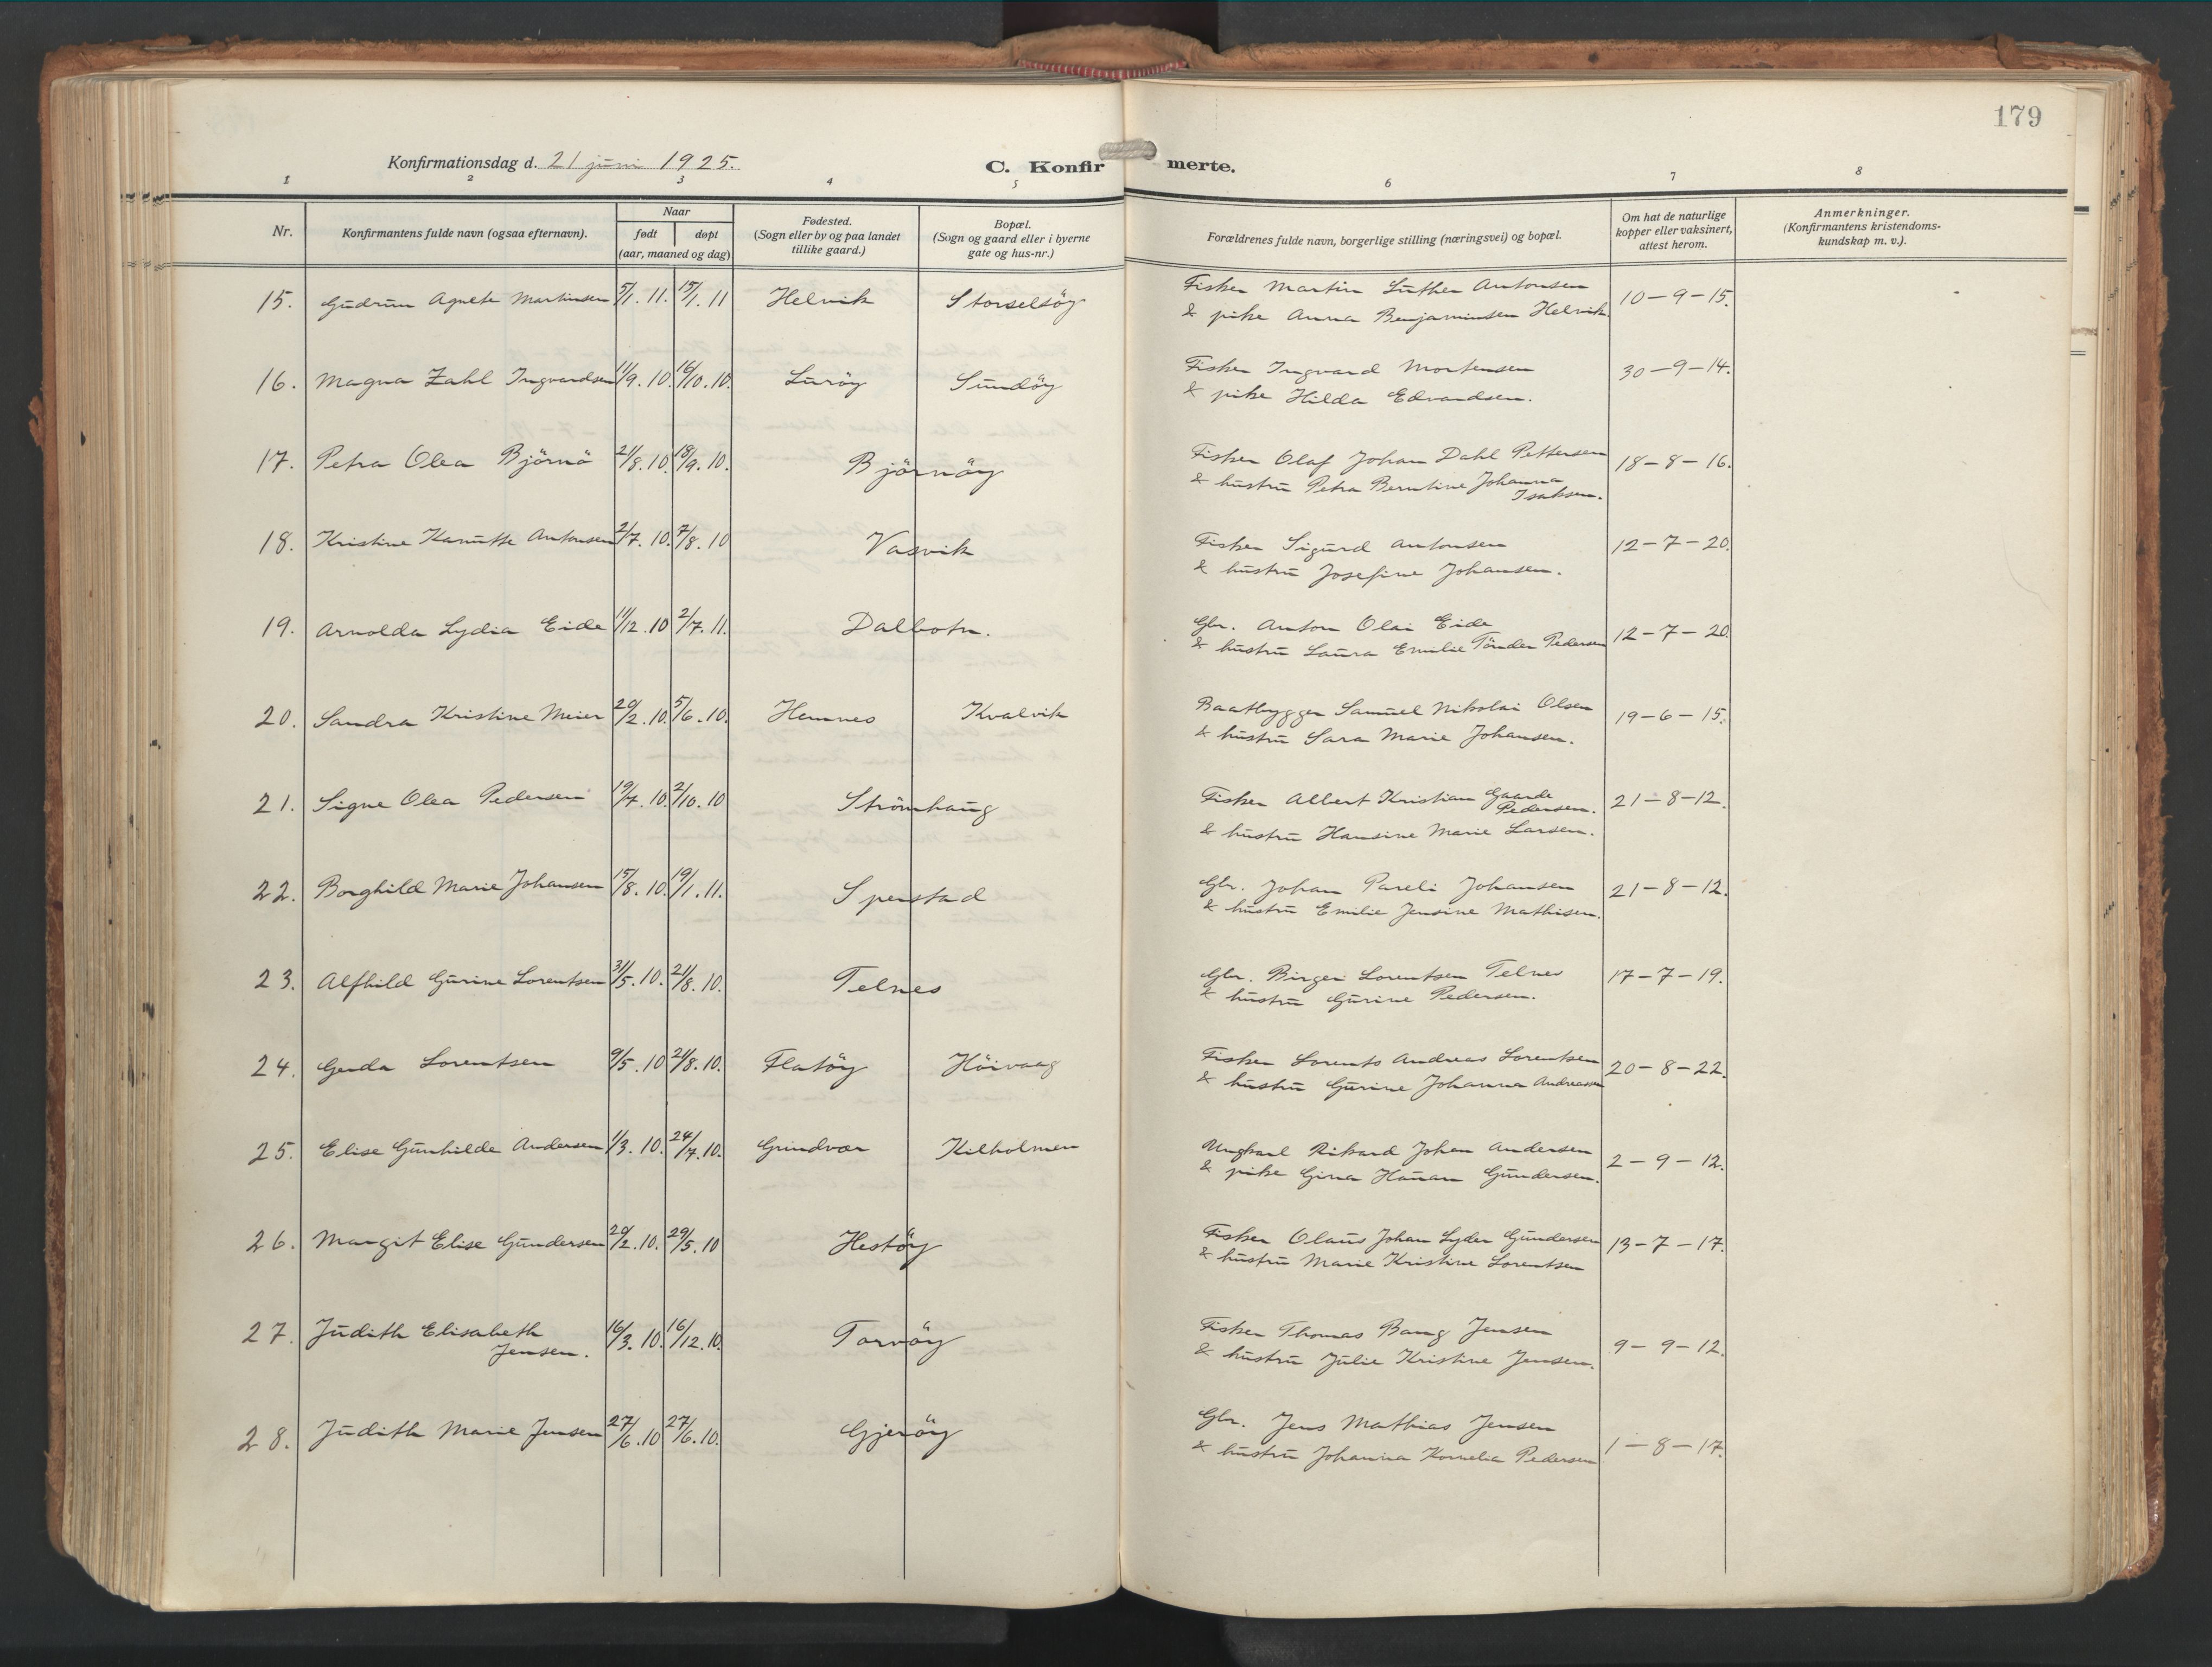 179
Konfirmationsdag d. 21 juni 1925.
C. Konfirmerte.
1 2 3 4 5 6 7 8
Nr.
Konfirmantens fulde navn (ogsaa efternavn).
Naar
født døpt
(aar, maaned og dag)
Fødested.
(Sogn eller by og paa landet
tillike gaard.)
Bopæl.
(Sogn og gaard eller i byerne
gate og hus-nr.)
Forældrenes fulde navn, borgerlige stilling (næringsvei) og bopæl.
Om hat de naturlige
kopper eller vaksinert,
attest herom.
Anmerkninger.
(Konfirmantens kristendoms-
kundskap m. v.).
15. Gudrun Agnete Martinsen 5/1. 11. 15/1. 11 Helvik Storselsöy Fisker Martin Luther Antonsen 10-9-15.
& pike Anna Benjaminsen Helvik.
16. Magna Zahl Ingvardsen 11/9. 10. 16/10. 10. Luröy Sundöy Fisker Ingvard Mortensen 30-9-14.
& pike Hilda Edvardsen.
17. Petra Olea Björnö 21/8. 10. 18/9. 10. Björnöy Fisker Olaf Johan Dahl Pettersen 18-8-16.
& hustru Petra Berntine Johanna
Isaksen.
18. Kristine Kanutte Antonsen 2/7. 10. 7/8. 10 Vasvik Fisker Sigurd Antonsen 12-7-20.
& hustru Josefine Johansen.
19. Arnolda Lydia Eide 11/12. 10 2/7. 11. Dalbotn. Gbr. Anton Olai Eide 12-7-20.
& hustru Laura Emilie Tönder Pedersen
20. Sandra Kristine Meier 20/2. 10. 5/6. 10. Hemnes Kvalvik Baatbygger Samuel Nikolai Olsen 19-6-15.
& hustru Sara Marie Johansen.
21. Signe Olea Pedersen 19/7. 10. 2/10. 10 Strömhaug Fisker Albert Kristian Gaarde
Pedersen. 21-8-12.
& hustru Hansine Marie Larsen.
22. Borghild Marie Johansen 15/8. 10. 19/1. 11. Sperstad Gbr. Johan Pareli Johansen 21-8-12.
& hustru Emilie Jensine Mathisen.
23. Alfhild Gurine Lorentsen 31/5. 10. 21/8. 10. Telnes Gbr. Birger Lorentsen Telnes 17-7-19.
& hustru Gurine Pedersen.
24. Gerda Lorentsen 9/5. 10 21/8. 10. Flatöy Höivaag Fisker Lorents Andreas Lorentsen 20-8-22.
& hustru Gurine Johanna Andreassen
25. Elise Gunhilde Andersen 1/3. 10. 24/7. 10. Grundvær Kilholmen Ungkarl Rikard Johan Andersen 2-9-12.
& pike Gina Gundersen.
26. Margit Elise Gundersen 20/2. 10. 29/5. 10 Hestöy Fisker Olaus Johan Lyder Gundersen 13-7-17.
& hustru Marie Kristine Lorentsen
27. Judith Elisabeth
Jensen. 16/3. 10. 16/12. 10. Torvöy Fisker Thomas Bang Jensen 9-9-12.
& hustru Julie Kristine Jensen.
28. Judith Marie Jensen 27/6. 10 27/6. 10. Gjeröy Gbr. Jens Mathias Jensen 1-8-17.
& hustru Johanna Kornelia Pedersen